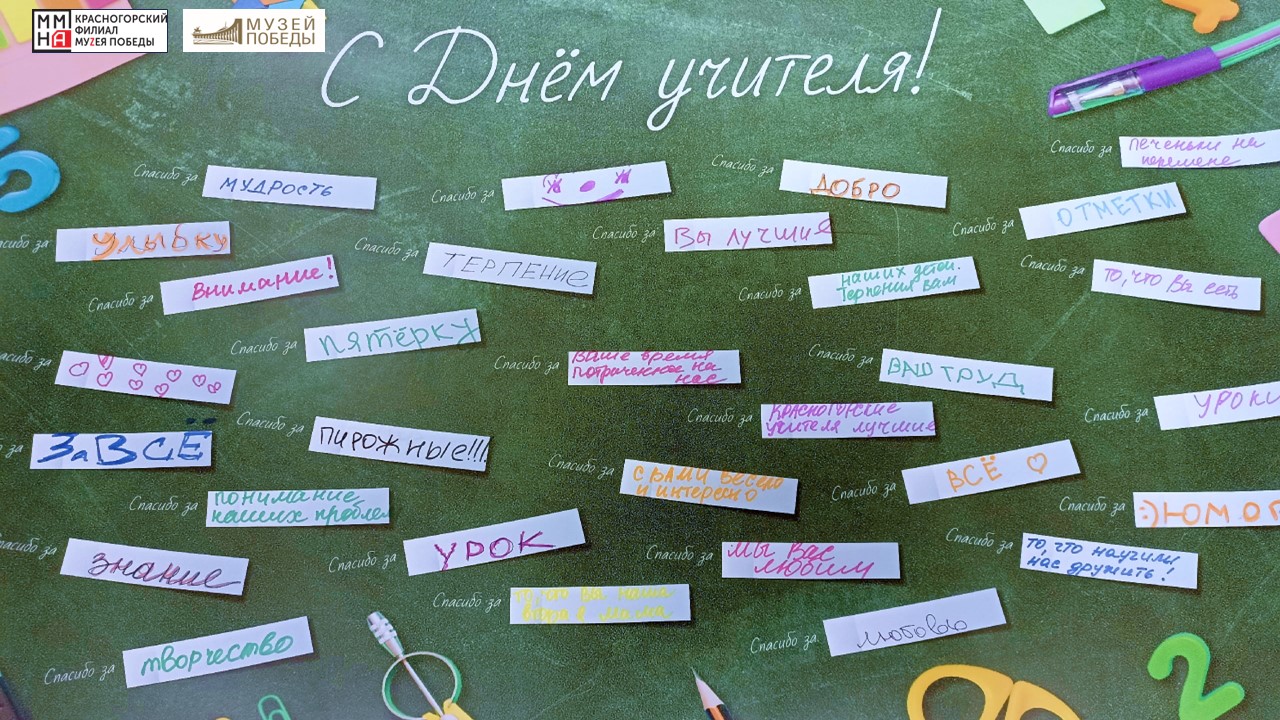 ММ
НА
КРАСНОГОРСКИЙ
ФИЛИАЛ
МУZЕЯ ПОБЕДЫ
МУЗЕЙ
ПОБЕДЫ
С Днём учителя!
Спасибо за мудрость
Спасибо за
Спасибо за ДОБРО
Спасибо за печеньки на
перемене
Спасибо за улыбку
Спасибо за ТЕРПЕНИЕ
Спасибо за ВЫ ЛУЧШИЕ
Спасибо за ОТМЕТКИ
Спасибо за внимание!
Спасибо за наших детей.
Терпения вам
Спасибо за то, что Вы есть
Спасибо за пятёрку
Спасибо за
Спасибо за Ваше время
потраченное на
нас
Спасибо за ВАШ ТРУД
Спасибо за УРОКИ
за ЗаВСЁ
Спасибо за ПИРОЖНЫЕ!!!
Спасибо за КРАСНОГОРСКИЕ
учителя лучшие
Спасибо за С ВАМИ ВЕСЕЛО
и интересно
Спасибо за ВСЁ
Спасибо за понимание
наших проблем
Спасибо за :)ЮМОР
Спасибо за знание
Спасибо за УРОК
Спасибо за мы вас
любим
Спасибо за то, что научили
нас дружить!
Спасибо за то, что вы наша
мама
Спасибо за творчество
Спасибо за любовью
2